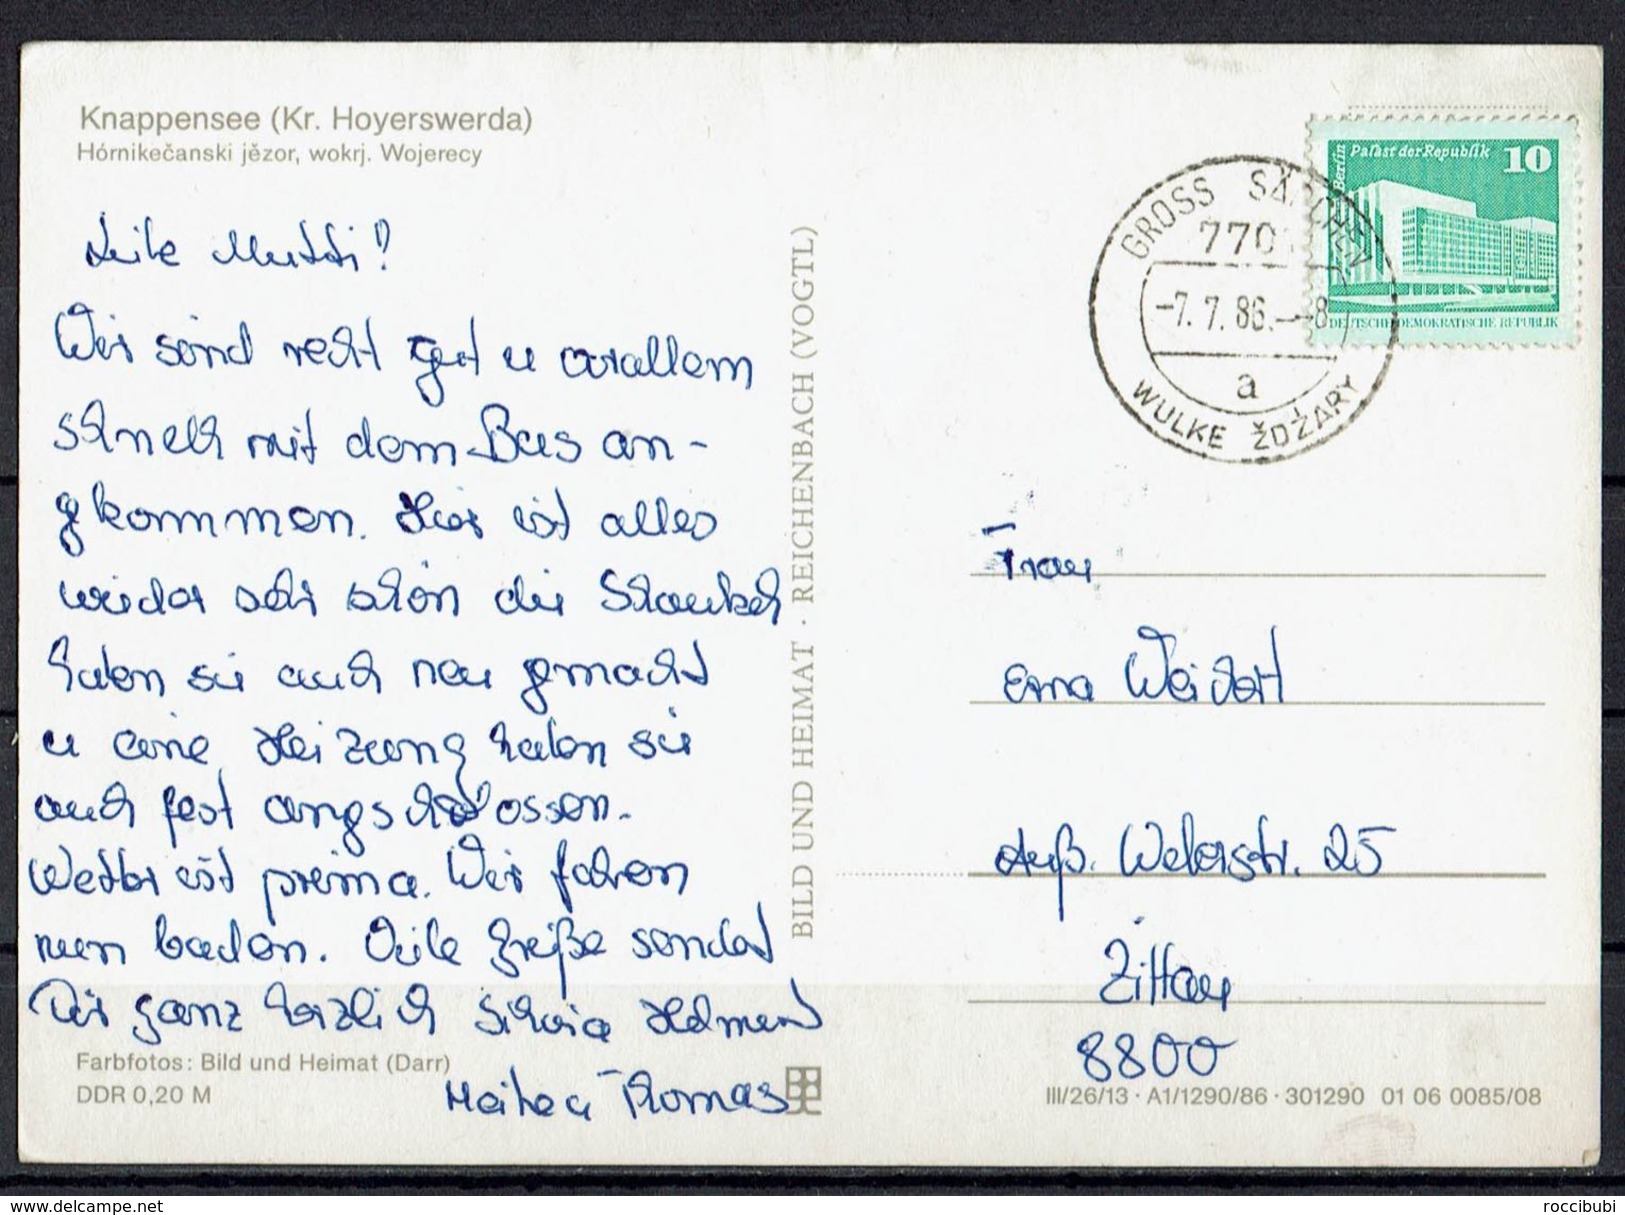 Knappensee (Kr. Hoyerswerda)
Hórnikečanski jězor, wokrj. Wojerecy
Liebe Mutti!
Wir sind recht gut u vorallem
schnell mit dem Bus an-
gekommen. Hier ist alles
wieder sehr schön die
haben sie auch neu gemacht
u eine Heizung haben sie
auch fest angeschlossen.
Wetter ist prima. Wir fahren
nun baden. Viele Grüße sendet
Dir ganz herzlich Silvia Helmut
Heike u Thomas
Farbfotos: Bild und Heimat (Darr)
DDR 0,20 M
BILD UND HEIMAT · REICHENBACH (VOGTL)
GROSS SÄRCHEN
770
-7.7.86.--8
a
WULKE ŽDŽARY
Berlin
Palast der Republik 10
DEUTSCHE DEMOKRATISCHE REPUBLIK
Frau
Erna Weichert
Äuß. Weberstr. 25
Zittau
8800
III/26/13 · A1/1290/86 · 301290 01 06 0085/08
delcampe.net
roccibubi